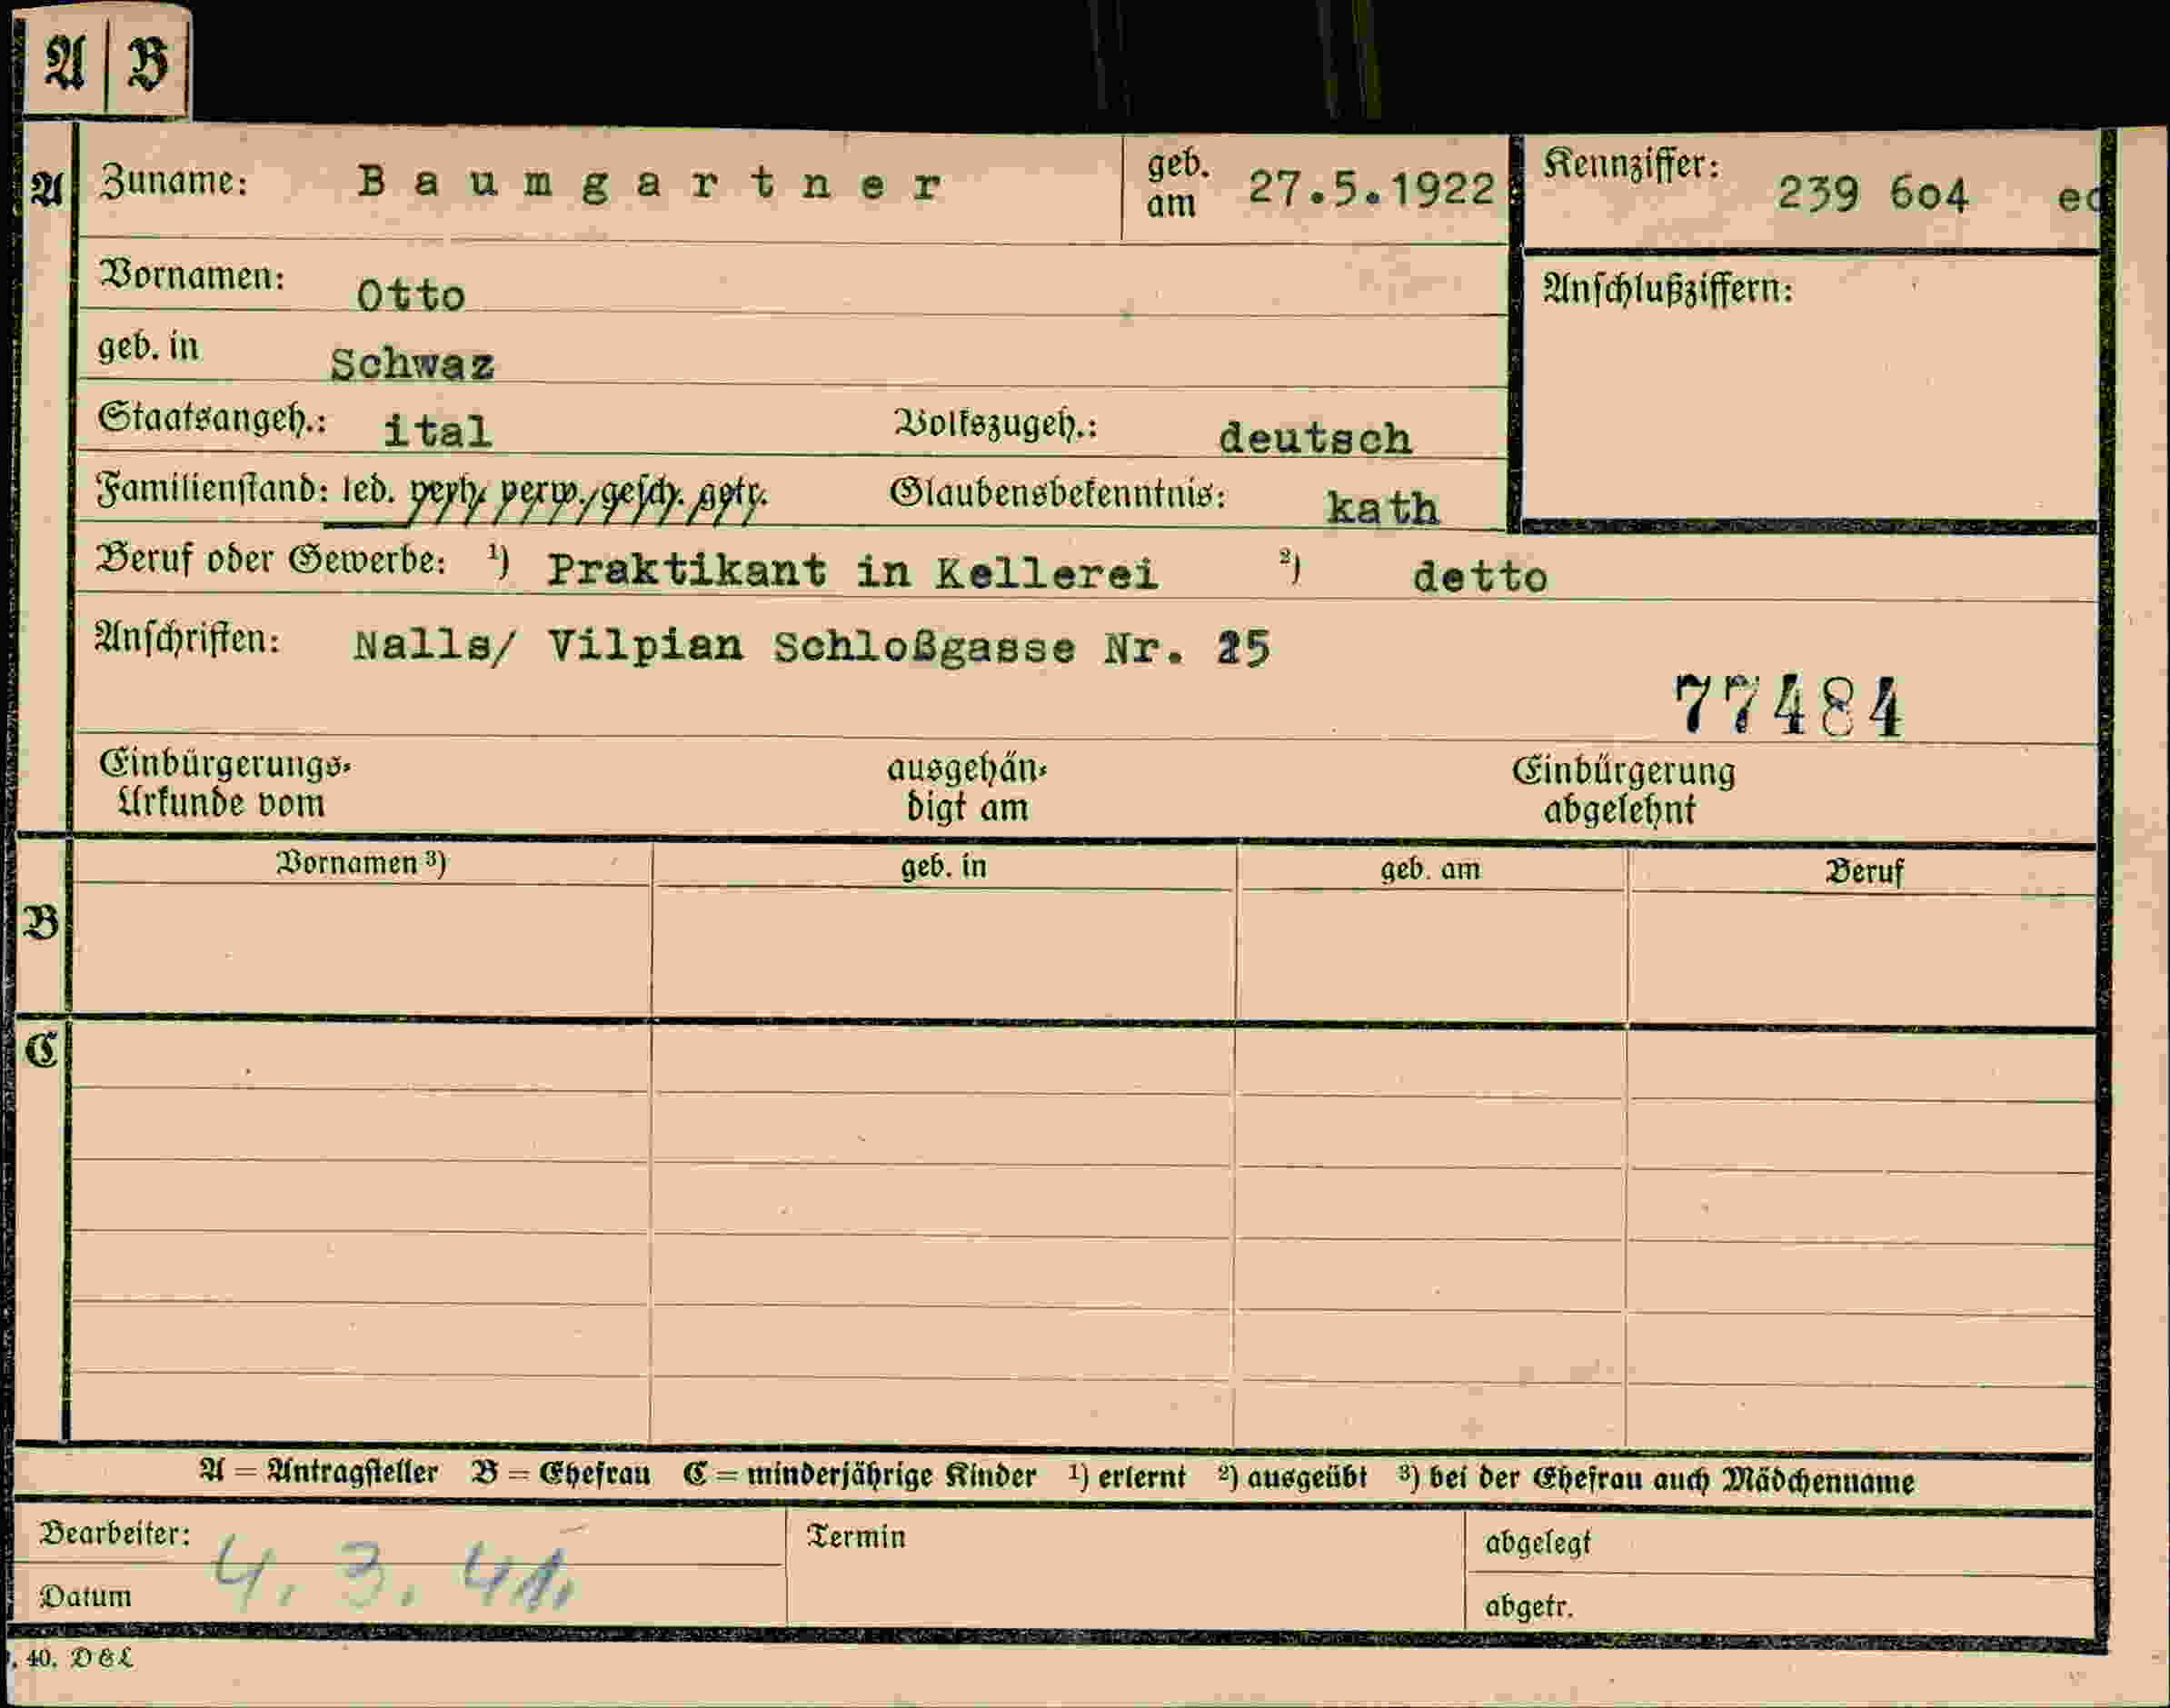 A B
A Zuname: Baumgartner geb. am 27.5.1922 Kennziffer: 239 604
Vornamen: Otto Anschlußziffern:
geb. in Schwaz
Staatsangeh.: ital Volkszugeh.: deutsch
Familienstand: led. verh. verw. gesch. getr. Glaubensbekenntnis: kath
Beruf oder Gewerbe: ¹) Praktikant in Kellerei ²) detto
Anschriften: Nalls/ Vilpian Schloßgasse Nr. 25
77484
Einbürgerungs- ausgehän- Einbürgerung
Urkunde vom digt am abgelehnt
Vornamen ³) geb. in geb. am Beruf
B
C
A = Antragsteller B = Ehefrau C = minderjährige Kinder ¹) erlernt ²) ausgeübt ³) bei der Ehefrau auch Mädchenname
Bearbeiter: Termin abgelegt
4. 3. 41.
Datum abgetr.
40. D & L